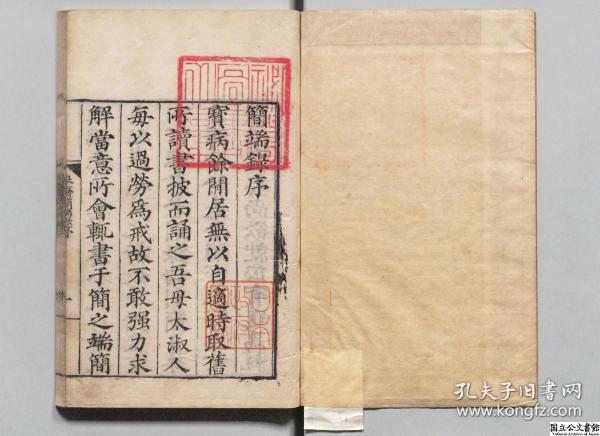 簡端錄序
寳病餘閒居無以自適時取舊
所讀書披而誦之吾母太淑人
每以過勞爲戒故不敢强力求
解當意所會輒書于簡之端簡
孔夫子旧书网
www.kongfz.com
国立公文書館
National Archives of Japan